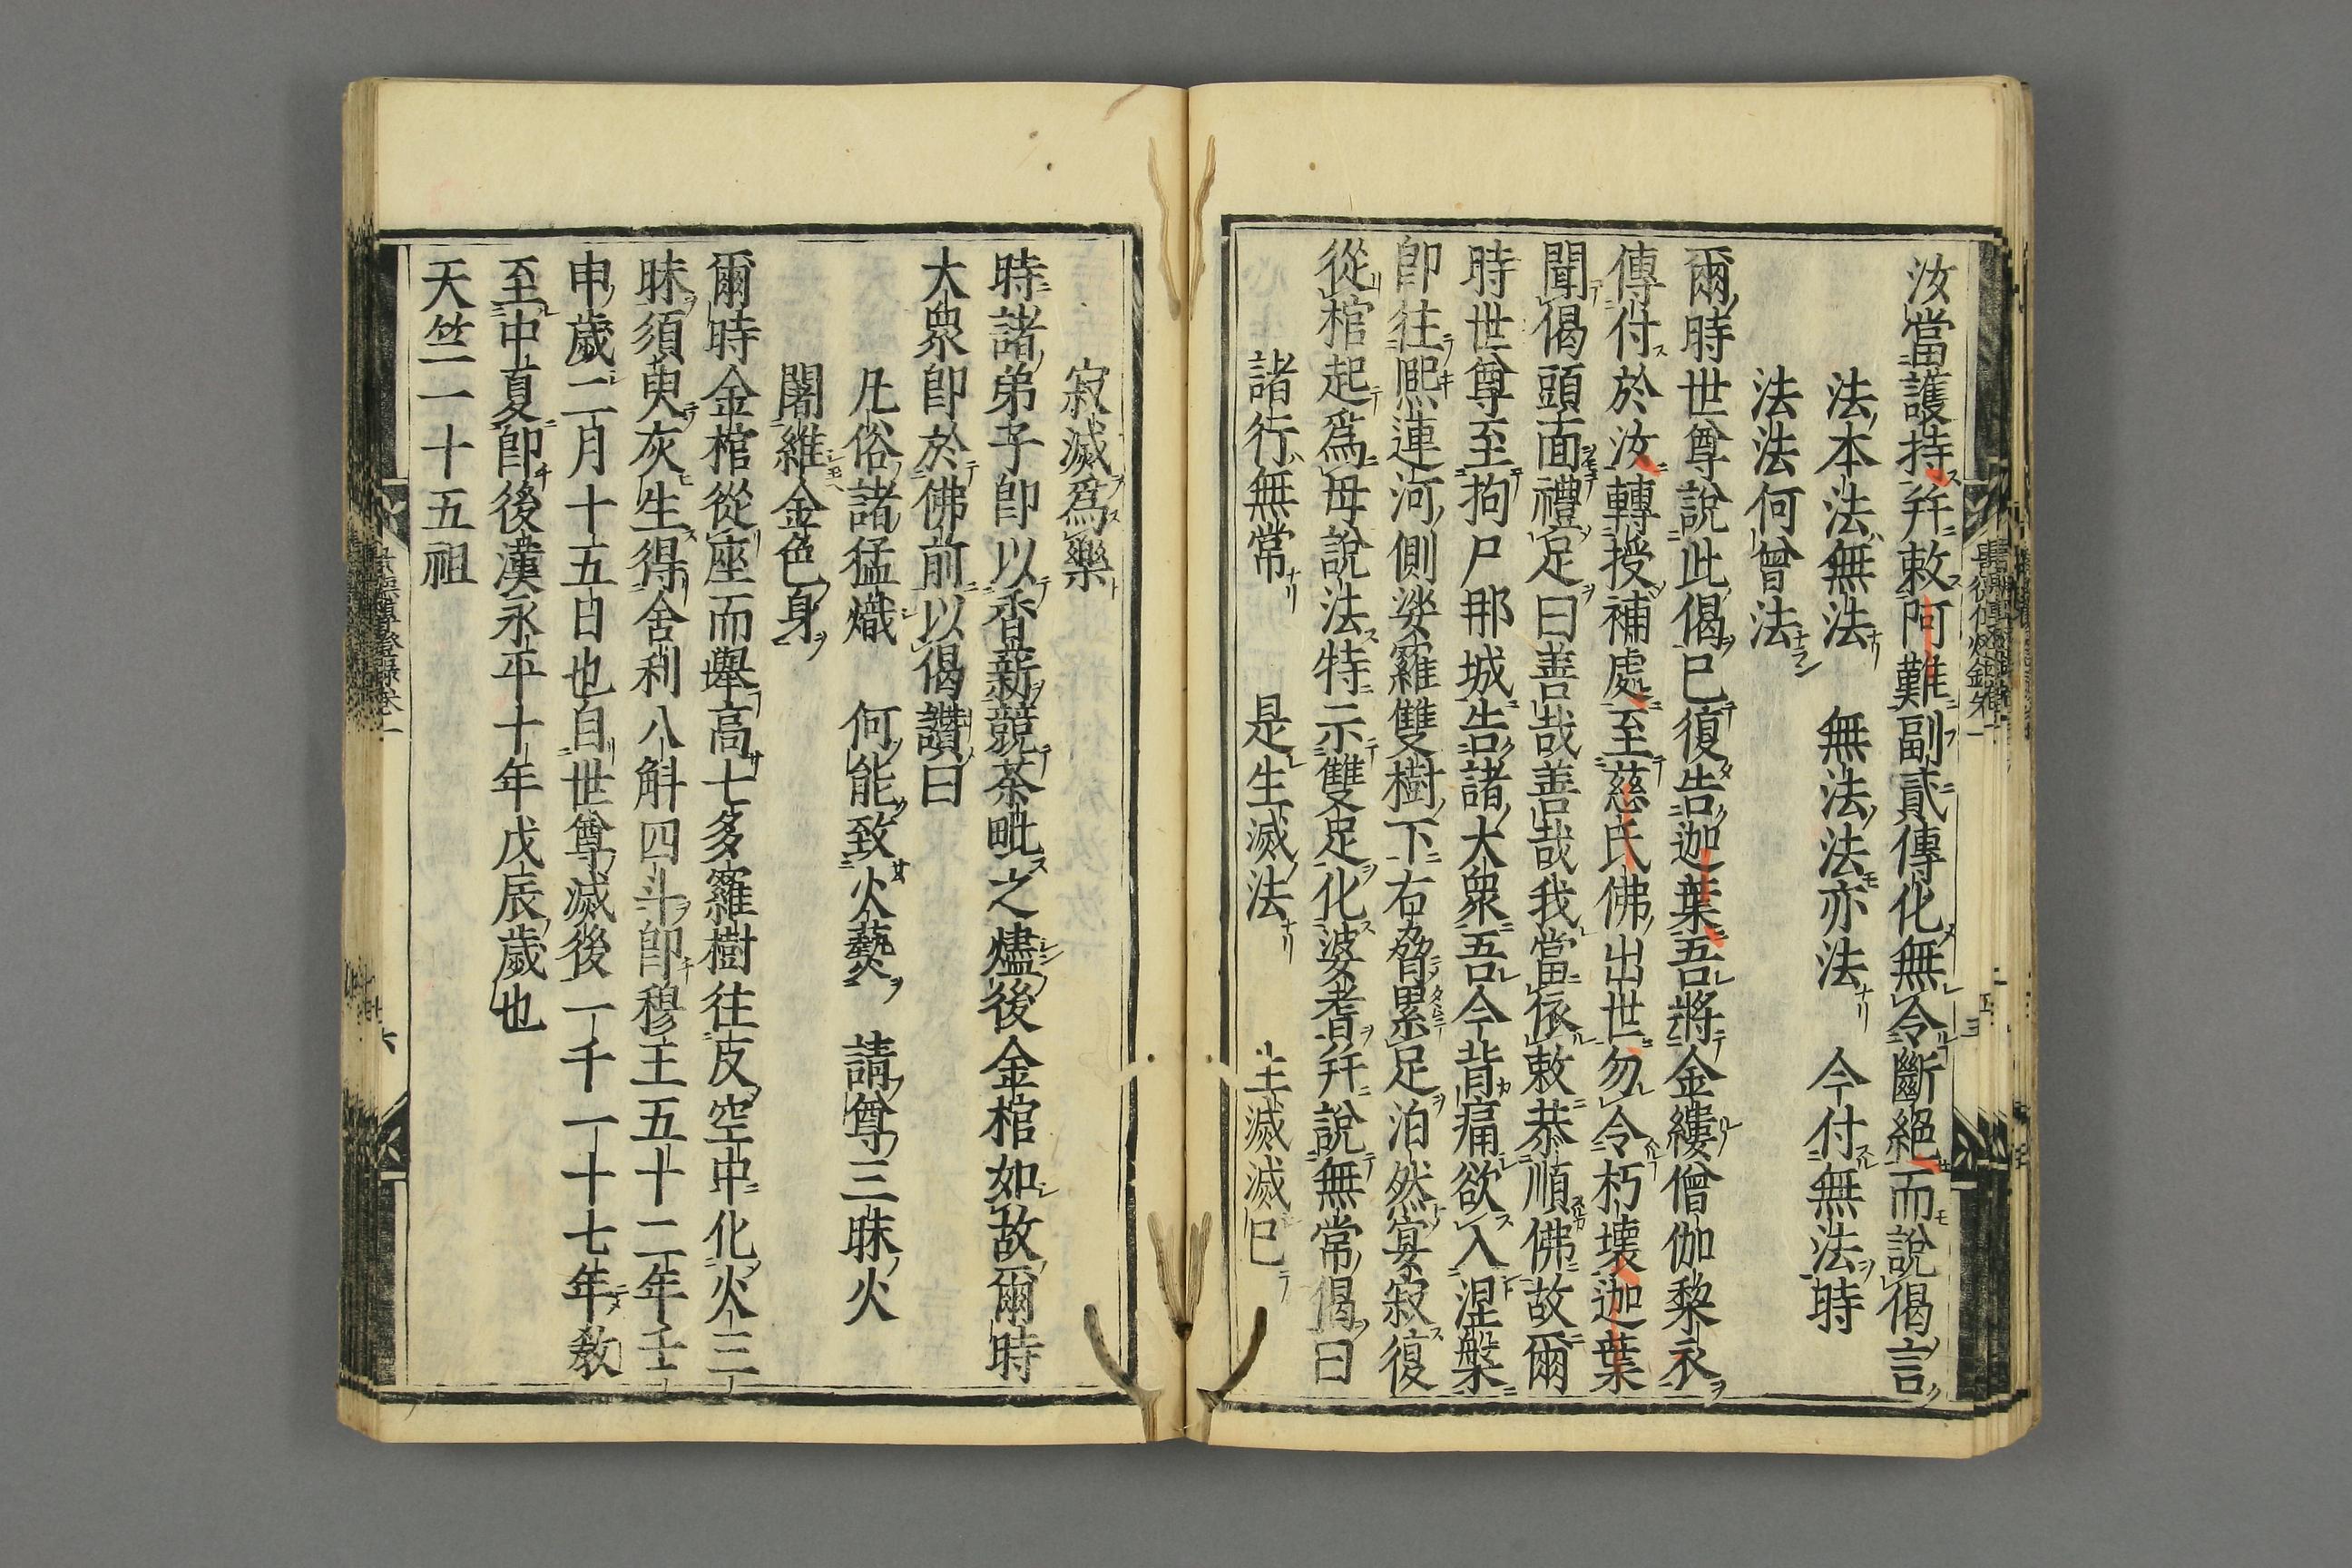 汝當護持幷敕阿難副貳傳化無令斷絕而說偈言
法本法無法　無法法亦法　今付無法時
法法何曾法
爾時世尊說此偈已復告迦葉吾將金縷僧伽黎衣
傳付於汝轉授補處至慈氏佛出世勿令朽壞迦葉
聞偈頭面禮足曰善哉善哉我當依敕恭順佛故爾
時世尊至拘尸那城告諸大衆吾今背痛欲入涅槃
卽往熈連河側娑羅雙樹下右脅累足泊然宴寂復
從棺起爲母說法特示雙足化婆耆幷說無常偈曰
諸行無常　是生滅法　生滅滅已
寂滅爲樂
時諸弟子卽以香薪競茶毗之燼後金棺如故爾時
大衆卽於佛前以偈讚曰
凡俗諸猛熾　何能致火爇　請尊三昧火
闍維金色身
爾時金棺從座而舉高七多羅樹往反空中化火三
昧須臾灰生得舍利八斛四斗卽穆王五十二年壬
申歲二月十五日也自世尊滅後一千一十七年教
至中夏卽後漢永平十年戊辰歲也
天竺一十五祖
景德傳燈錄卷一
六